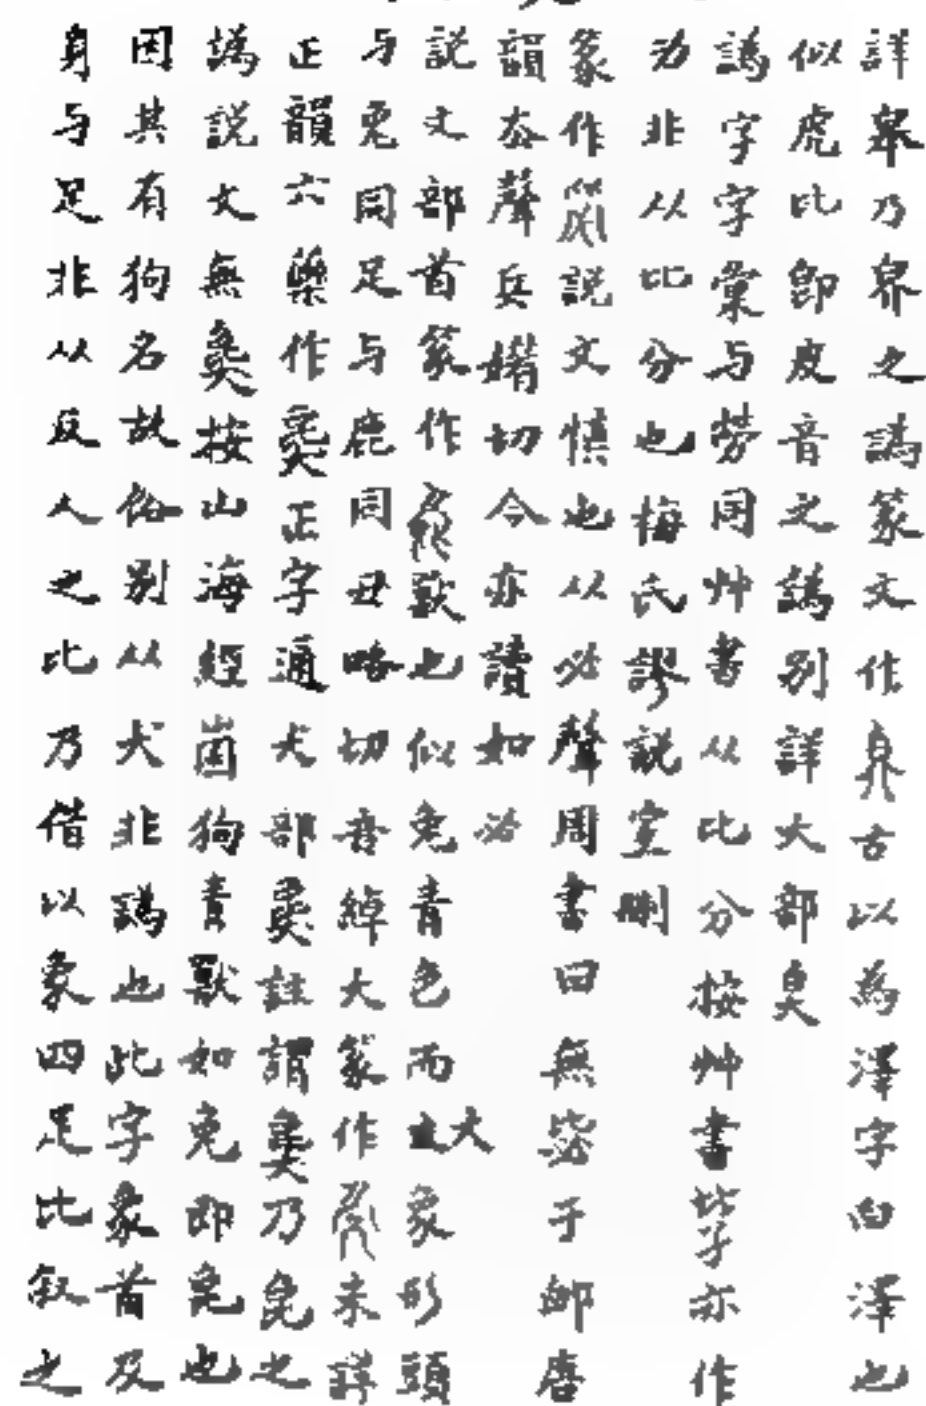 詳皋乃畀之譌篆文作臭古以為澤字白澤也
似虎比即皮音之譌別詳大部臭
譌字字彙与勞同艸書从比分按艸書亦作
为非从比分也梅氏謬説室刪
篆作説文慎也从必聲周書曰無毖于卹唐
韻去聲兵媚切今亦讀如必
説文部首篆作獸也似兔青色而大象形頭
与兔同足与鹿同丑略切音綽大篆作未詳
正韻六藥作㚟正字通犬部㚟註謂㚟乃㲋之
譌説文無㚟按山海經崮狗青獸如兔即㲋也
因其有狗名故俗別从犬非譌也此字象首及
身与足非从反人之比乃借以象四足比叙之